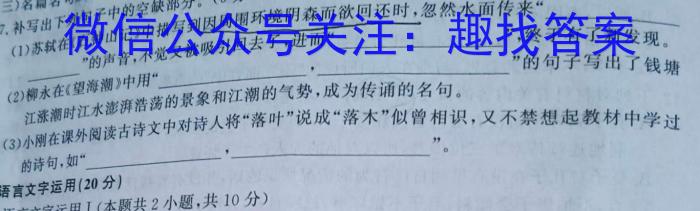 三)名篇名句
7.补写出下 子中的空缺部分。
(1)苏轼在 中描写到因周围环境阴森而欲回还时,忽然水面传来“
”的声音,不觉又被吸 回去了,进而 终 了 发现。
微信公众号关注:趣找答案
(2)柳永在《望海潮》中用“ , ”的句子写出了钱塘
江涨潮时江水澎湃浩荡的景象和江潮的气势,成为传诵的名句。
(3)小刚在课外阅读古诗文中对诗人将“落叶”说成“落木”似曾相识,又不禁想起教材中学过
的诗句,如“ , ”。
语言文字运用(20分)
语言文字运用Ⅰ(本题共2小题,共10分)